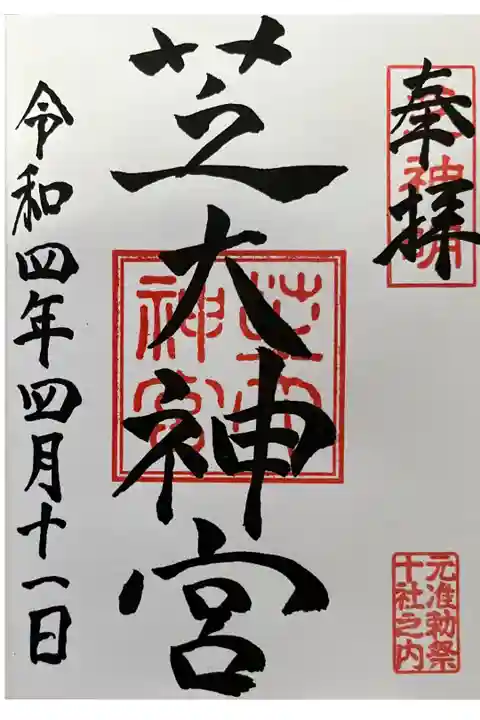 奉拝
芝大神宮
芝大神宮
元准勅祭
十社之内
令和四年四月十一日